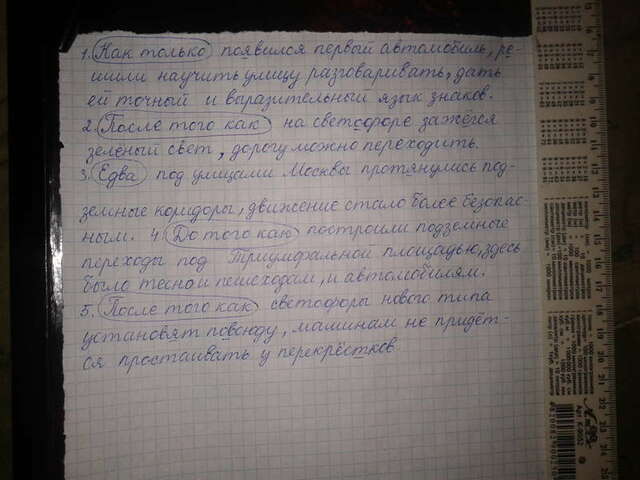 1. Как только появился первый автомобиль, ре-
шили научить улицу разговаривать, дать
ей точный и выразительный язык знаков.
2. После того как на светофоре зажёгся
зеленый свет, дорогу можно переходить.
3. Едва под улицами Москвы протянулись под-
земные коридоры, движение стало более безопас-
ным. 4. До того как построили подземные
переходы под Триумфальной площадью, здесь
было тесно и пешеходам, и автомобилям.
5. После того как светофоры нового типа
установят повсюду, машинам не придёт-
ся простаивать у перекрёстков